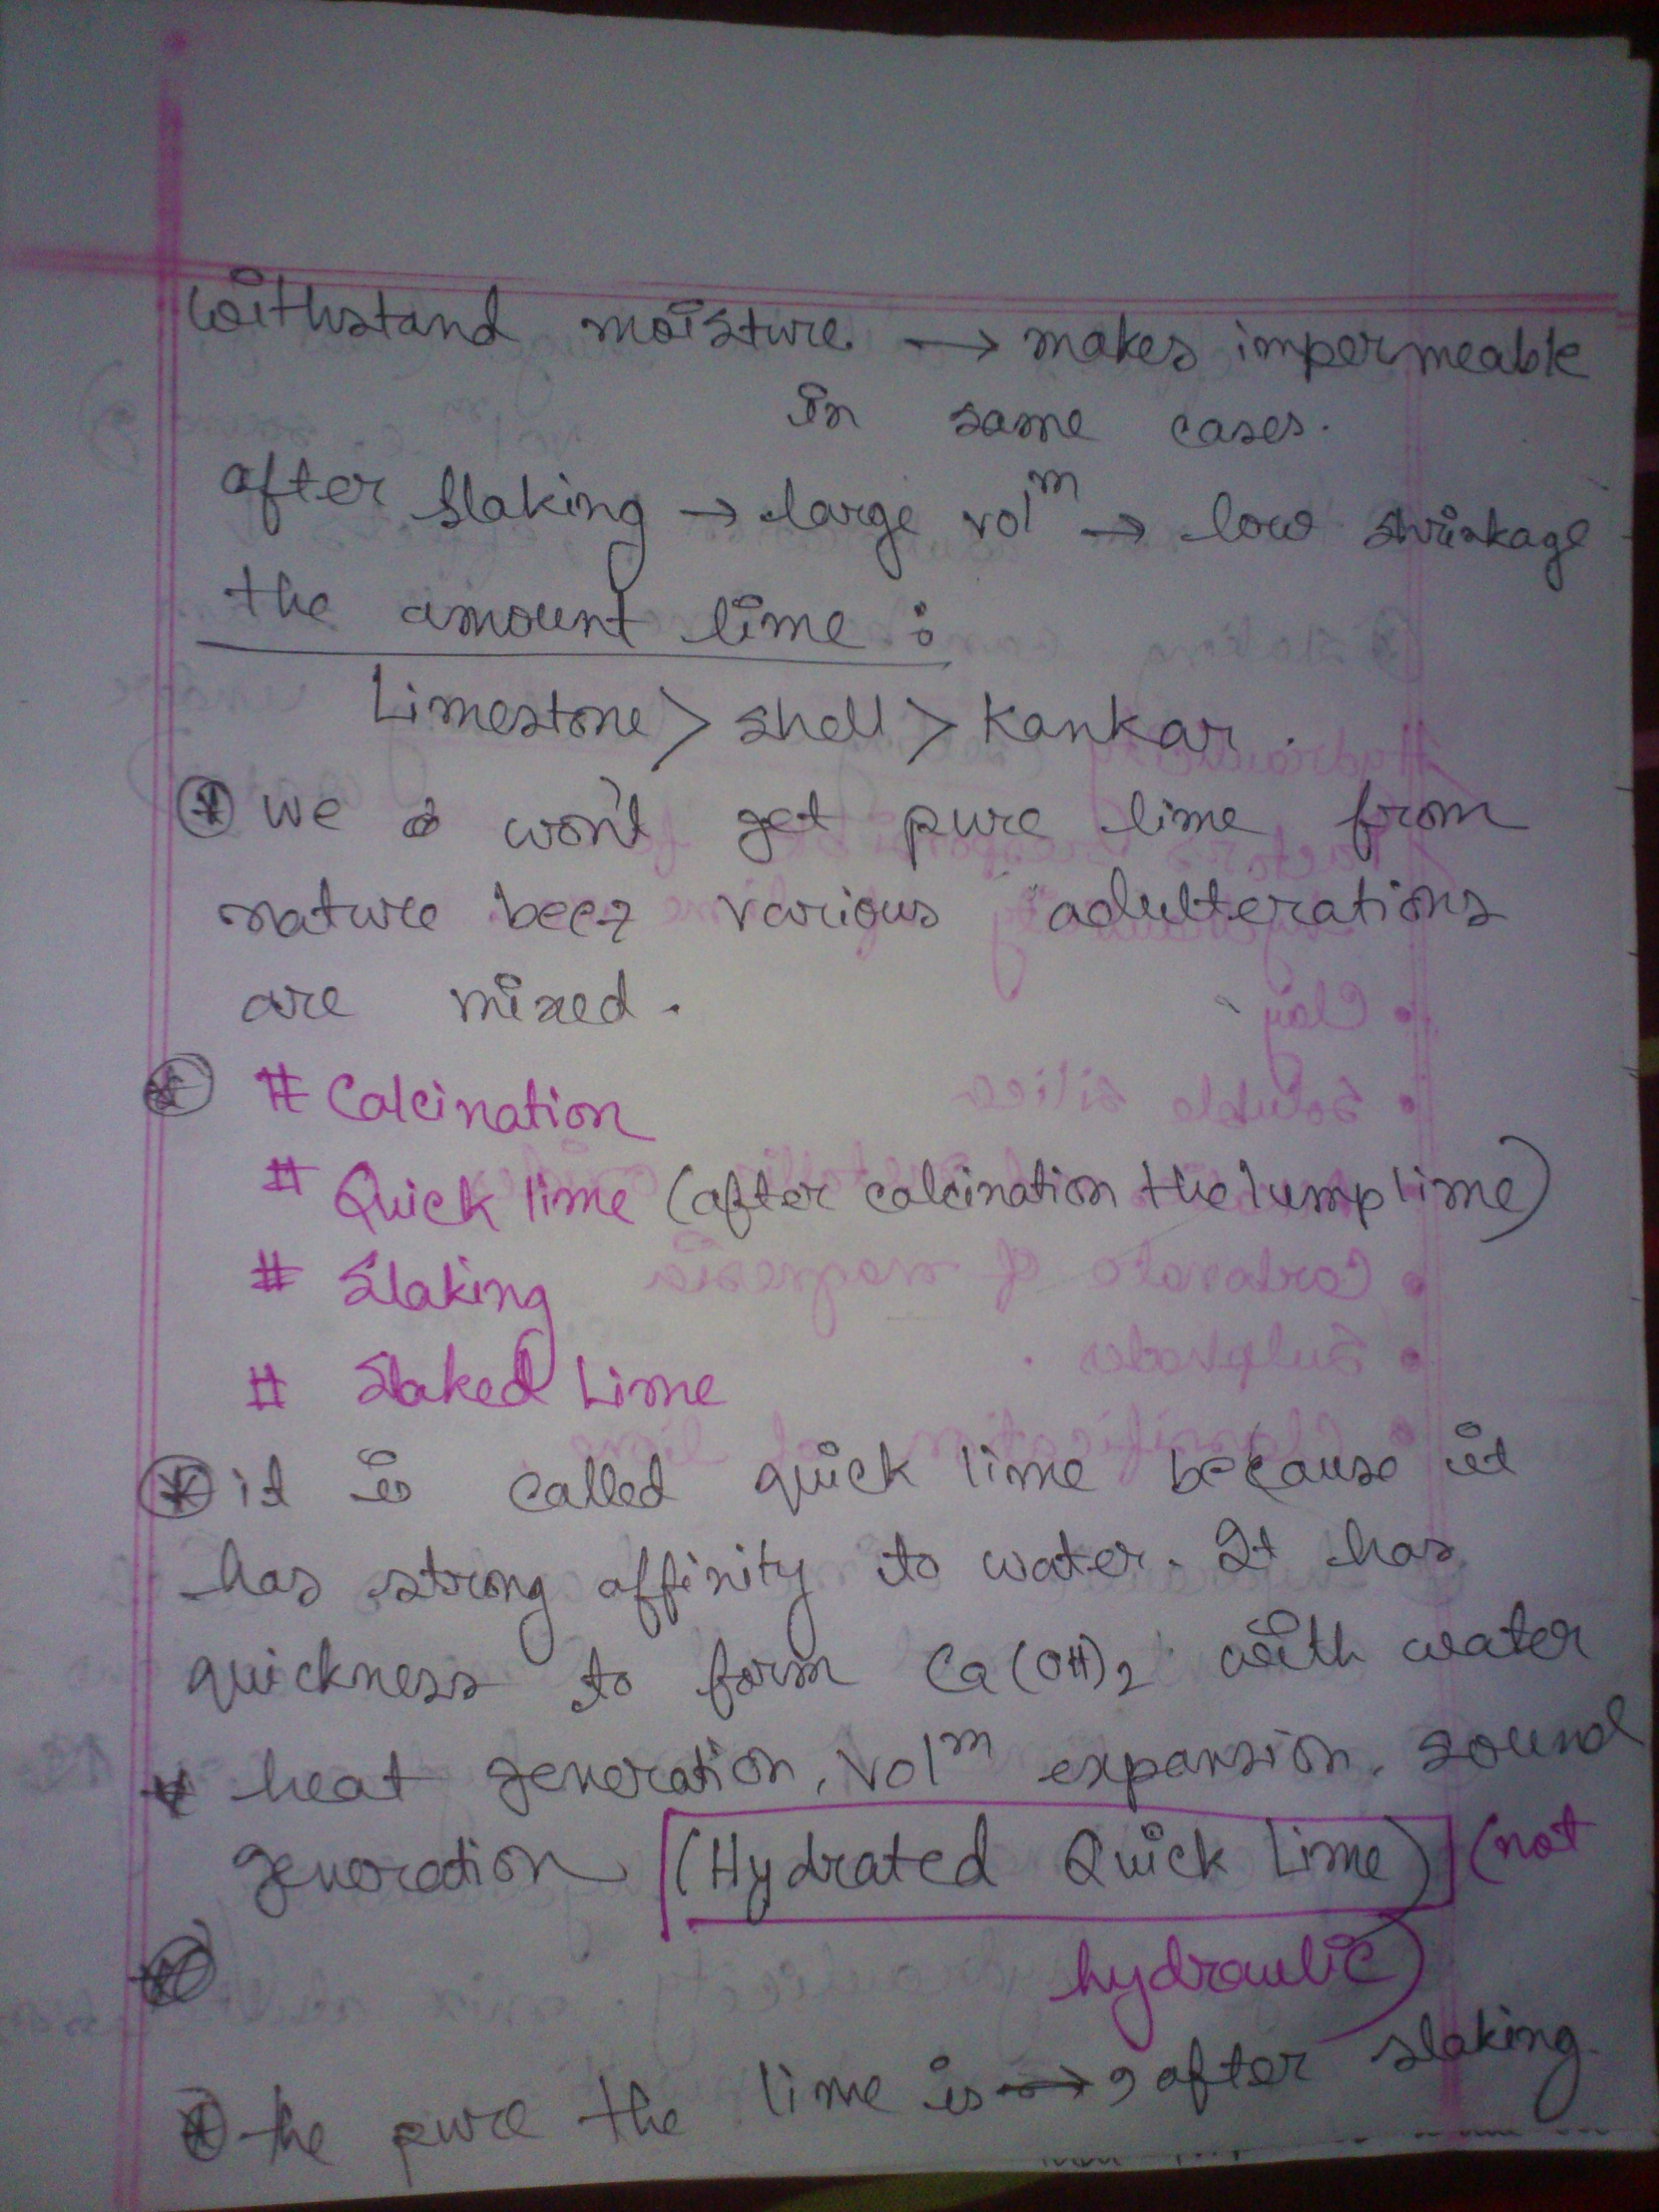 withstand moisture → makes impermeable
in same cases.
after slaking → large volm → low shrinkage
the amount lime :
Limestone > shell > Kankar .
* we won't get pure lime from
nature becz various adulterations
are mixed .
* # Calcination
# Quick lime (after calcination the lump lime)
# Slaking
# Slaked Lime
* it is called quick lime because it
has strong affinity to water. It has
quickness to form Ca(OH)2 with water
* heat generation, volm expansion, sound
generation (Hydrated Quick Lime) (not
hydraulic)
* the pure the lime is → , after slaking